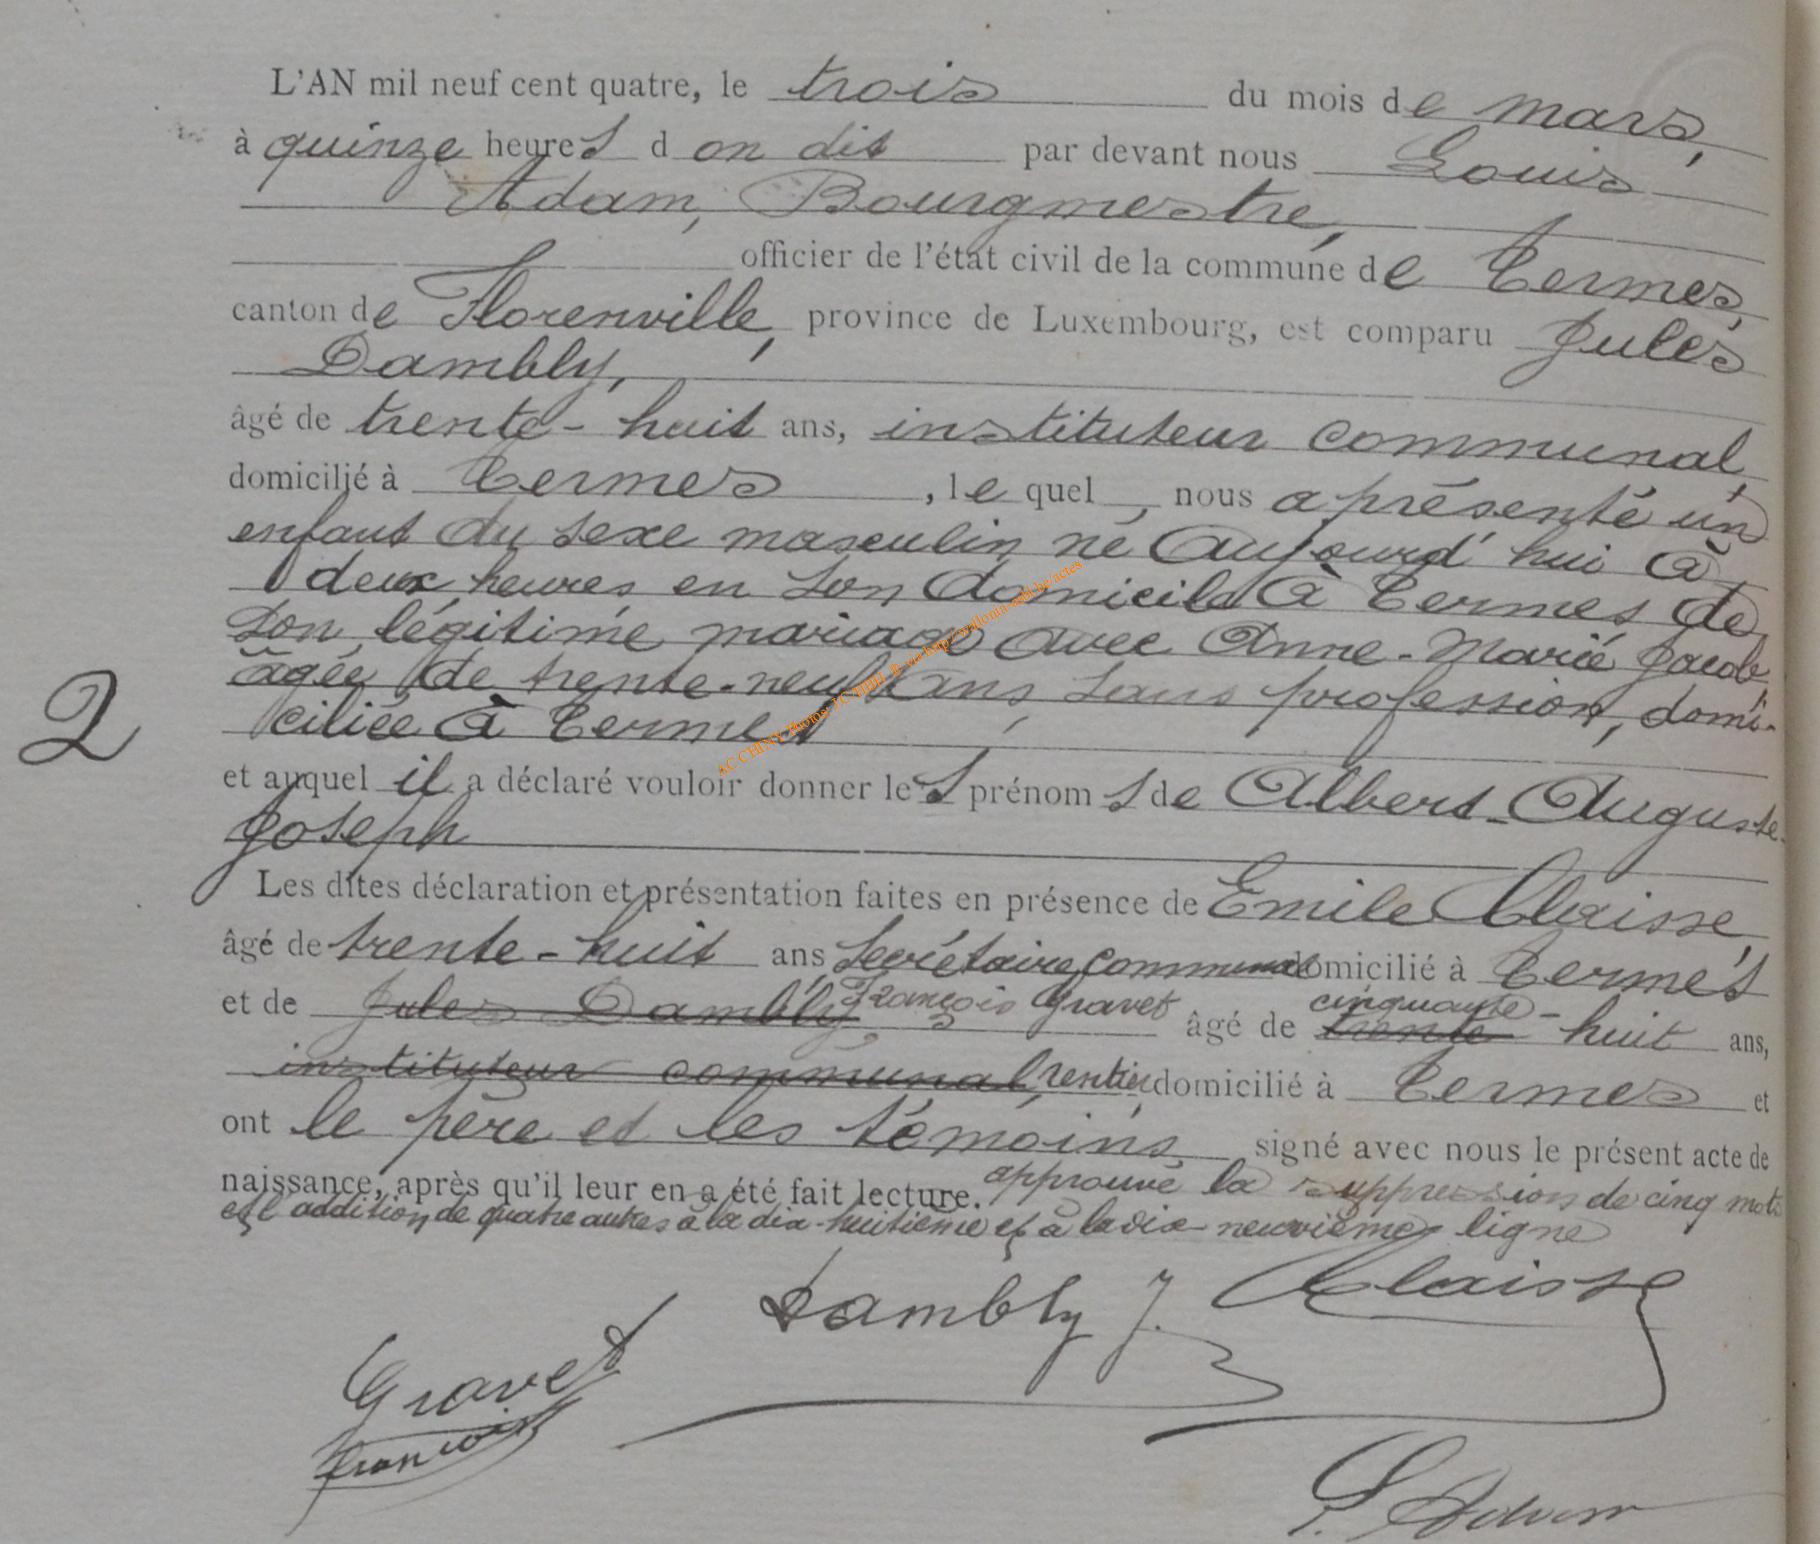 L'AN mil neuf cent quatre, le trois du mois de mars,
à quinze heures d on dit par devant nous Louis
Adam, Bourgmestre,
officier de l'état civil de la commune de Termes,
canton de Florenville, province de Luxembourg, est comparu Jules
Dambly,
âgé de trente-huit ans, instituteur communal,
domicilié à Termes, le quel nous a présenté un
enfant du sexe masculin né aujourd'hui à
deux heures en son domicile à Termes de
son légitime mariage avec Anne-Marie Jacob
âgée de trente-neuf ans, sans profession, domi-
ciliée à Termes
2
et auquel il a déclaré vouloir donner les prénoms de Albert-Auguste-
Joseph
Les dites déclaration et présentation faites en présence de Emile Claisse,
âgé de trente-huit ans Secrétaire communal domicilié à Termes
et de Jules Dambly François Gravet âgé de trente cinquante-huit ans,
instituteur communal, rentier, domicilié à Termes et
ont le père et les témoins signé avec nous le présent acte de
naissance, après qu'il leur en a été fait lecture. approuvé la suppression de cinq mots
et l'addition de quatre autres à la dix-huitième et à la dix-neuvième ligne
Dambly J. Claisse
Gravet
François
L. Adam
AC CHINY Photos: JC THILL